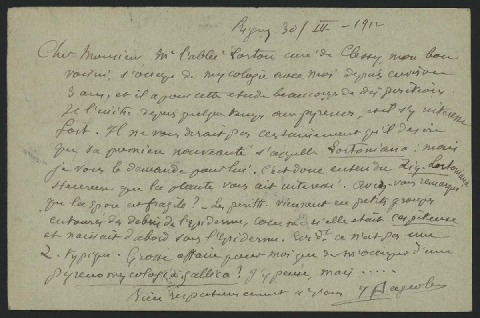 Rigny 30/IV - 1912
Cher Monsieur, Mr l'abbé Lortou curé de Clessy, mon bon
voisin, s'occupe de mycologie avec moi depuis environ
3 ans, et il a pour cette étude beaucoup de dispositions
Je l'incite depuis quelque temps aux pyrenos, et il s'y intéresse
fort. Il ne vous dirait pas certainement qu'il désire
que sa première nouveauté s'appelle Lortoniana: mais
je vous le demande pour lui. C'est donc entendu Zig. Lortoniana
Heureux que la plante vous ait intéressé. Avez-vous remarqué
que la spore est fragile? - Les périth. viennent en petits groupes
entourés des débris de l'épiderme, comme si elle était cespiteuse
et naissait d'abord sous l'épiderme. ce n'est pas une
Z. typique. Grosse affaire pour moi que de m'occuper d'une
pyrenomycologia gallica? J'y pense, mais .....
Bien respectueusement